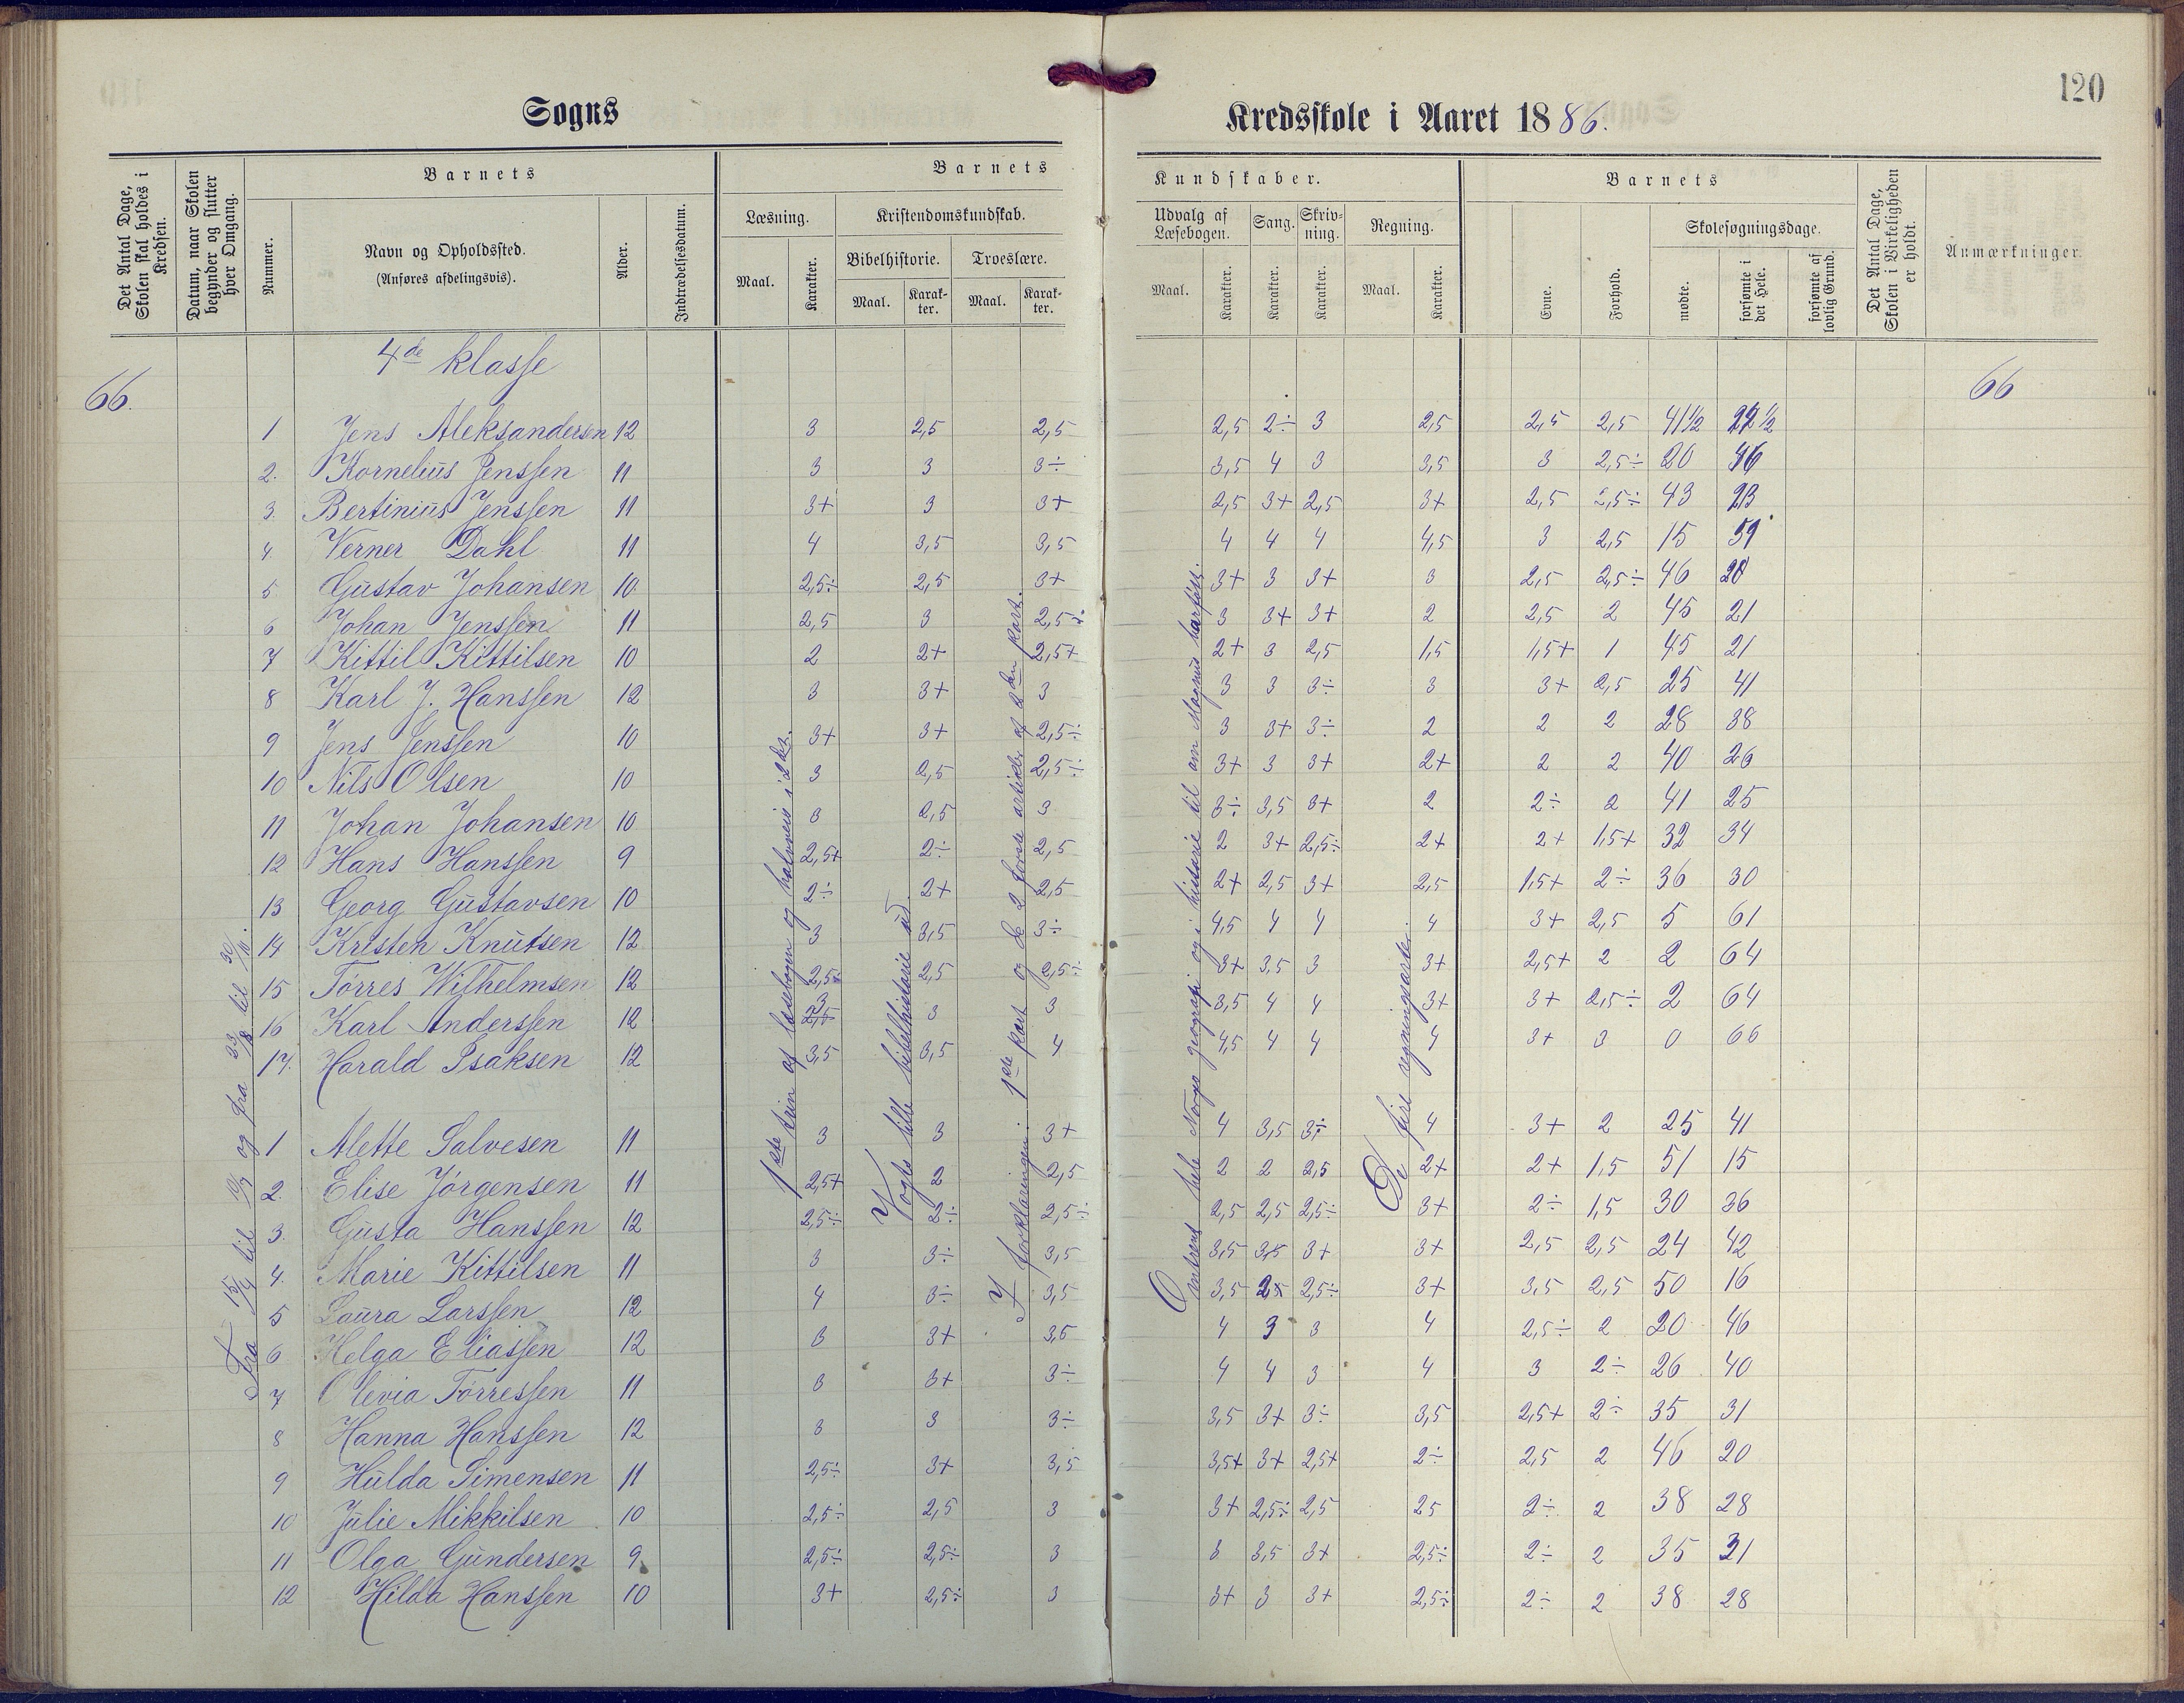 120
Sogns Kredsskole i Aaret 1886.
Det Antal Dage, Skolen skal holdes i Kredsen.
Datum, naar Skolen begynder og slutter hver Omgang.
Barnets
Nummer.
Navn og Opholdssted.
(Anføres afdelingsvis).
Alder.
Indtrædelsesdatum.
Barnets Kundskaber.
Læsning.
Maal. Karakter.
Kristendomskundskab.
Bibelhistorie. Troeslære.
Maal. Karakter. Maal. Karakter.
Udvalg af Læsebogen. Sang. Skrivning. Regning.
Maal. Karakter. Karakter. Karakter. Maal. Karakter.
Barnets
Evne. Forhold.
Skolesøgningsdage.
mødte. forsømte i det Hele. forsømte af lovlig Grund.
Det Antal Dage, Skolen i Virkeligheden er holdt.
Anmærkninger.
4de klasse
66. 66
1 Jens Aleksandersen 12 3 2,5 2,5 2,5 2÷ 3 2,5 2,5 2,5 41½
2. Kornelius Jenssen 11 3 3 3÷ 3,5 4 3 3,5 3 2,5÷ 20 46
3. Bertinius Jenssen 11 3+ 3 3+ 2,5 3+ 2,5 3+ 2,5 2,5÷ 43 23
4 Verner Dahl 11 4 3,5 3,5 4 4 4 4,5 3 2,5 15 51
5 Gustav Johansen 10 2,5÷ 2,5 3+ 3+ 3 3+ 3 2,5 2,5÷ 46 20
6 Johan Jenssen 11 2,5 3 2,5÷ 3 3+ 3+ 2 2,5 2 45 21
7 Kittil Kittilsen 10 2 2+ 2,5+ 2+ 3 2,5 1,5 1,5+ 1 45 21
8 Karl J. Hanssen 12 3 3+ 3 3 3 3÷ 3 3+ 2,5 25 41
9 Jens Jenssen 10 3+ 3+ 2,5÷ 3 3+ 3÷ 2 2 2 28 38
10 Nils Olsen 10 3 2,5 2,5÷ 3+ 3 3+ 2+ 2 2 40 26
11 Johan Johansen 10 3 2,5 3 3÷ 3,5 3+ 2 2÷ 2 41 25
12 Hans Hanssen 9 2,5+ 2÷ 2,5 2 3+ 2,5÷ 2+ 2+ 1,5+ 32 34
13 Georg Gustavsen 10 2÷ 2+ 2,5 2+ 2,5 3+ 2,5 1,5+ 2÷ 36 30
14 Kristen Knutsen 12 3 3,5 3÷ 4,5 4 4 4 3+ 2,5 5 61
15 Tørres Wilhelmsen 12 2,5+ 2,5 2,5÷ 3+ 3,5 3 3+ 2,5+ 2 2 64
16 Karl Anderssen 12 3 3 3 3,5 4 4 3+ 3+ 2,5÷ 2 64
17. Harald Isaksen 12 3,5 3,5 4 4,5 4 4 4 3+ 3 0 66
1 Alette Salvesen 11 3 3 3+ 4 3,5 3÷ 4 3+ 2 25 41
2. Elise Jørgensen 11 2,5+ 2 2,5 2 2 2,5 2+ 2+ 1,5 51 15
3. Gusta Hanssen 12 2,5÷ 2÷ 2,5÷ 2,5 2,5 2,5÷ 3+ 2÷ 1,5 30 36
4. Marie Kittilsen 11 3 3÷ 3,5 3,5 3,5 3+ 3+ 2,5 2,5 24 42
5 Laura Larssen 12 4 3÷ 3,5 3,5 2,5÷ 3+ 3,5 2,5 50 16
6 Helga Eliassen 12 3 3+ 3,5 4 3 3 4 2,5÷ 2 20 46
7 Olevia Tørressen 11 3 3+ 3÷ 4 4 3 4 3 2÷ 26 40
8 Hanna Hanssen 12 3 3 3÷ 3,5 3+ 3÷ 3,5 2,5+ 2÷ 35 31
9 Hulda Simensen 11 2,5÷ 3+ 3,5 3,5+ 3+ 2,5+ 2÷ 2,5 2 46 20
10 Julie Mikkilsen 10 2,5÷ 2,5 3 3+ 2,5÷ 2,5 25 2÷ 2 38 28
11 Olga Gundersen 9 2,5÷ 2,5÷ 3 3 3,5 3+ 2,5÷ 2÷ 2 35 31
12 Hilda Hanssen 10 3+ 2,5÷ 3 3+ 3 3+ 2,5÷ 2÷ 2 38 28
Fra 15/4 til 10/7 og fra 23/8 til 30/10.
1ste trin af læsebogen og halvveis i 2det.
Vogts lille bibelhistorie ud.
I forklaringen: 1ste part og de 2 første artikler af 2den part.
Omtrent hele Norges geografi og i historie til om Magnus barfodt.
De fire regningsarter.